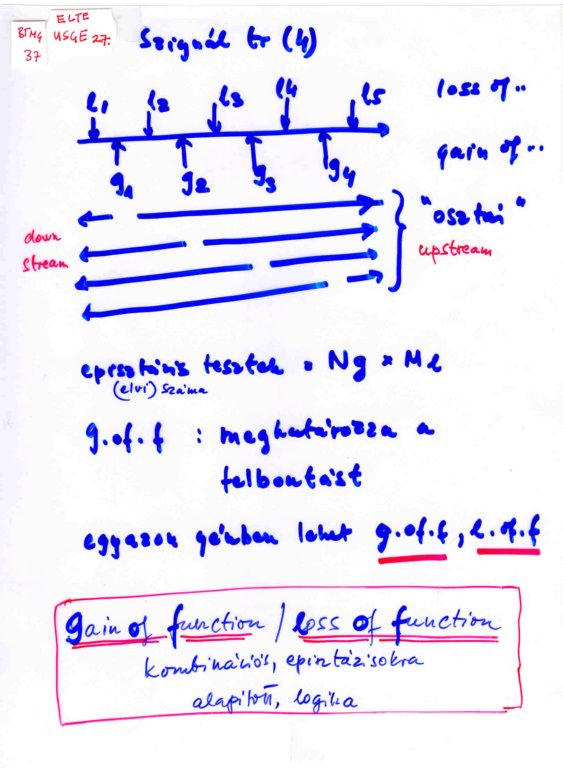 ELTE
BTMG USGE 27.
37
Szignál tr (4)
l1 l2 l3 l4 l5
loss of..
gain of..
g1 g2 g3 g4
"osztás"
down
stream
upstream
episztázis tesztek = Ng × Ml
(elvi) száma
g.of.f : meghatározza a
felbontást
egyazon génben lehet g.of.f, l.of.f
gain of function / loss of function
kombinációs, episztázisokra
alapított, logika